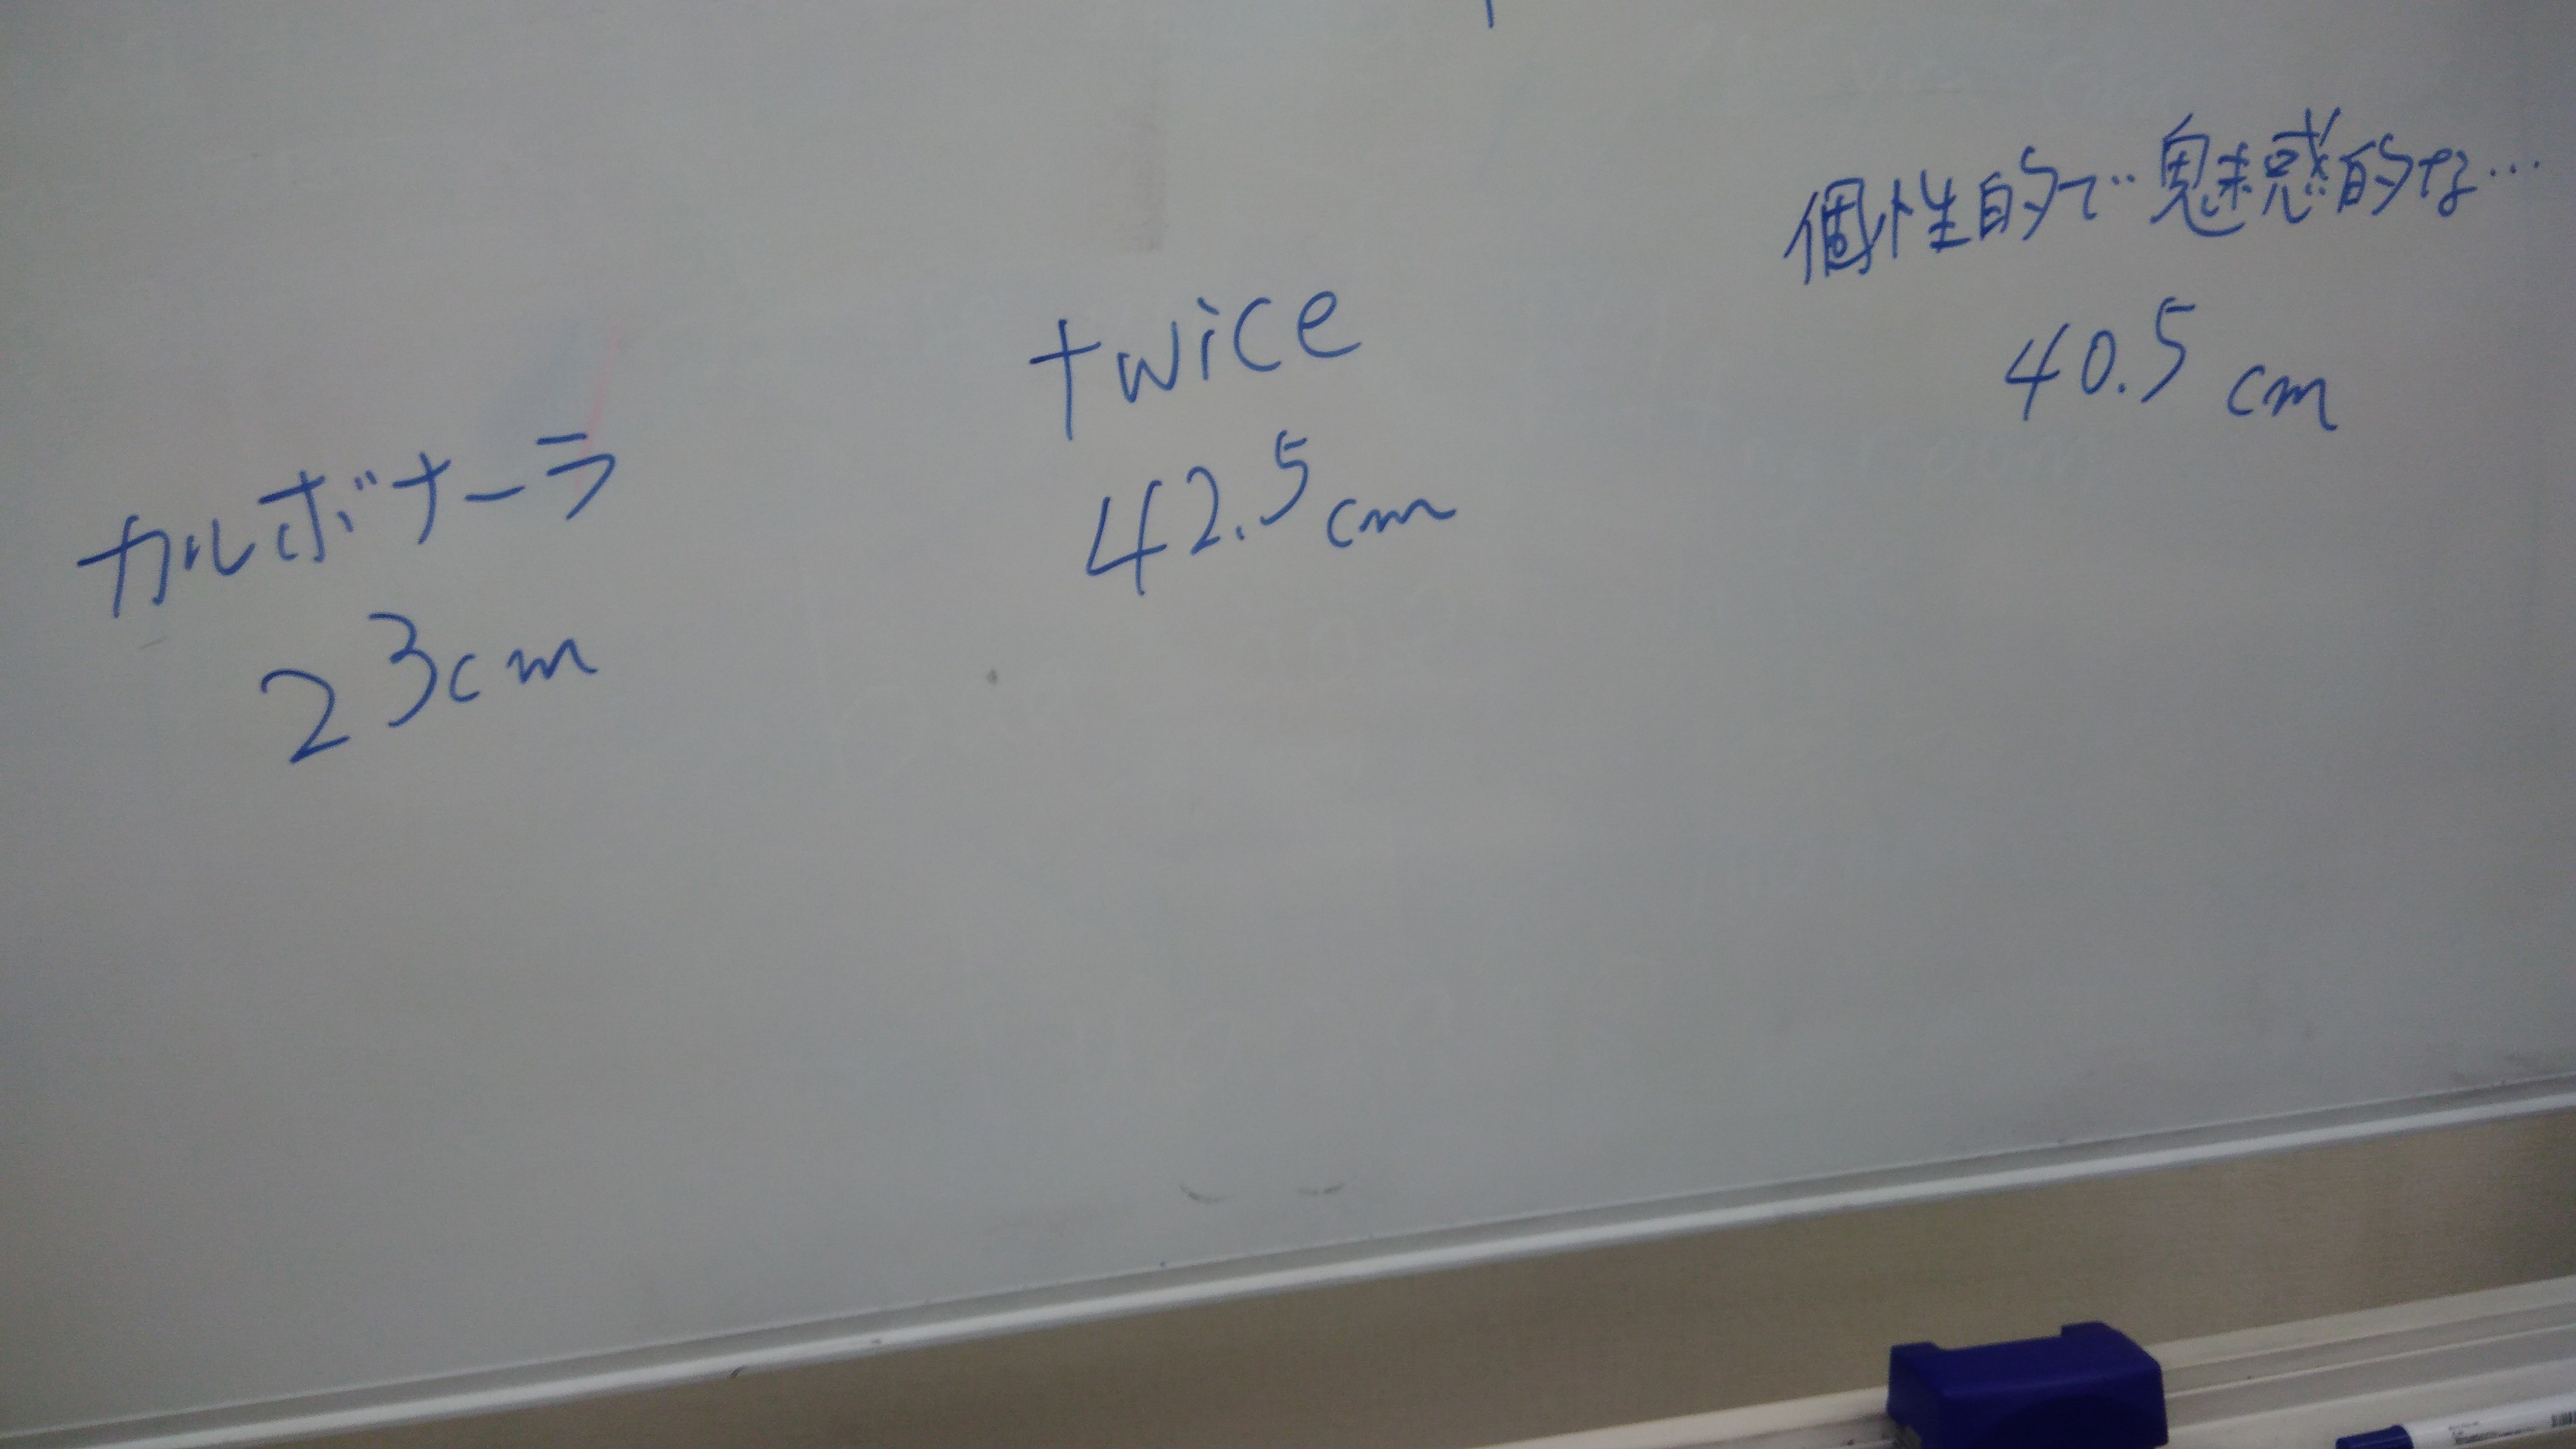 カルボナーラ
23cm
twice
42.5cm
個性的で魅惑的な…
40.5cm